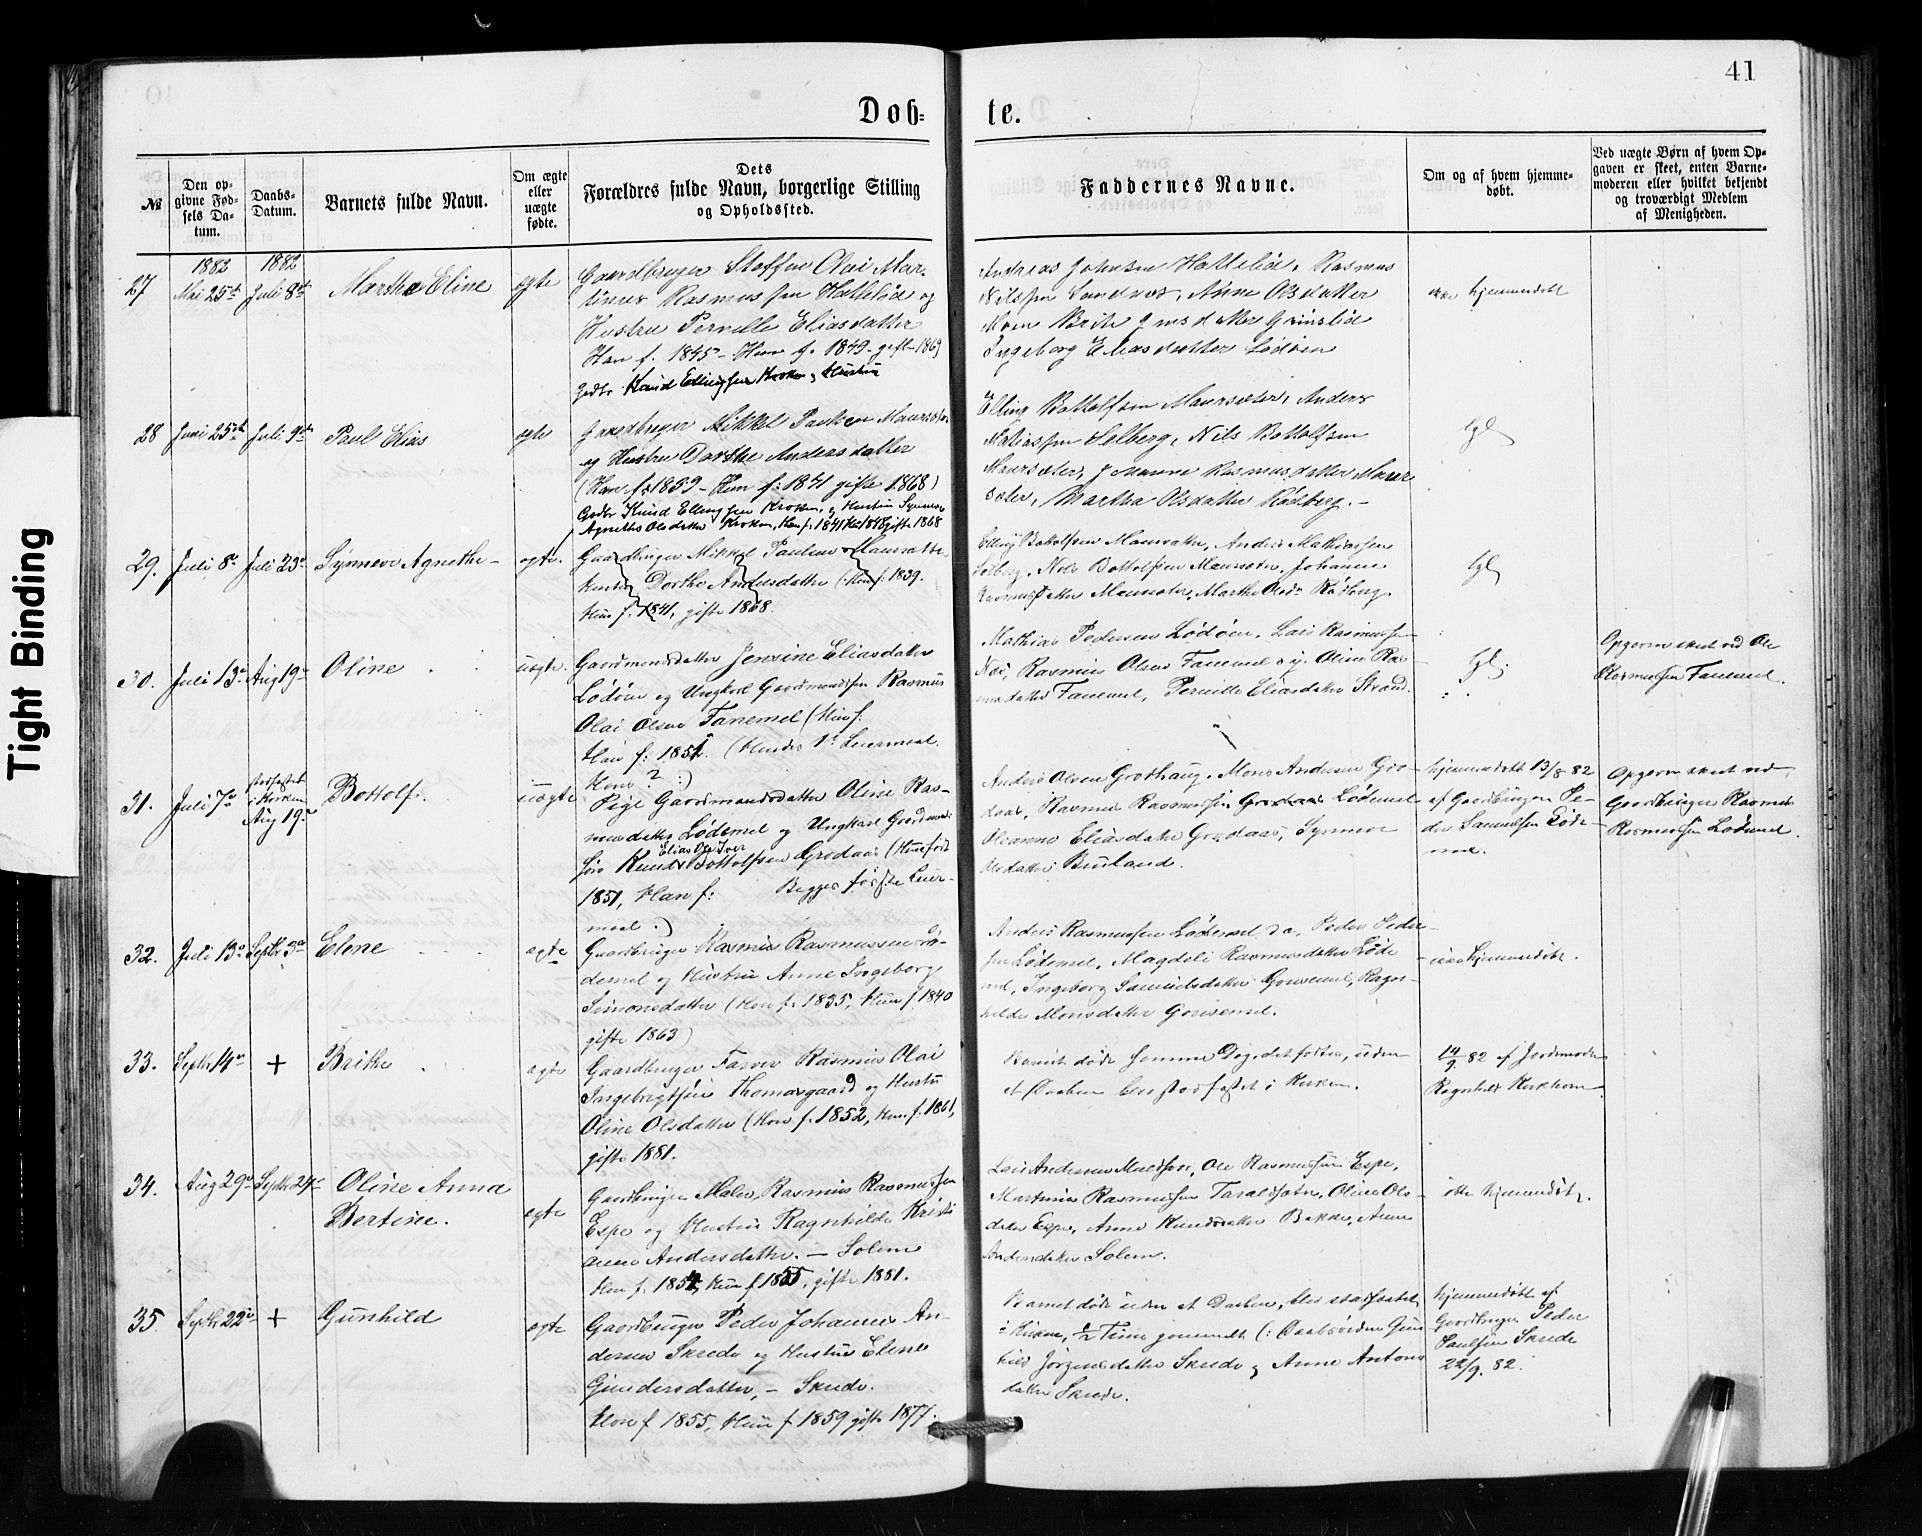 41
Døb=
te.
Tight Binding
№
Den op-
givne Fød-
sels Da-
tum.
Daabs-
Datum.
Barnets fulde Navn.
Om ægte
eller
uægte
fødte.
Dets
Forældres fulde Navn, borgerlige Stilling
og Opholdssted.
Faddernes Navne.
Om og af hvem hjemme-
døbt.
Ved uægte Børn af hvem Op-
gaven er skeet, enten Barne-
moderen eller hvilket bekjendt
og troværdigt Medlem
af Menigheden.
27
1882
Mai 25de
1882
Juli 8de
Marthe Eline
ægte
Gaardbruger Steffen Olai Mar-
tinus Rasmussen Hattelid og
Hustru Pernille Eliasdatter
Han f. 1845 - Hun f. 1849 - gift 1869
Gdbr Knud Ellingsen Kroken og Hustru
Andreas Johnsen Hattelid, Rasmus
Nilssen Sandnes, Anne Olsdatter
Moen Brite Jensdatter Grinslid
Ingeborg Eliasdatter Lødøen
ikke hjemmedøbt
28
Juni 25de
Juli 9de
Paul Elias
ægte
Gaardbruger Mikkel Paulsen Maursæter
og Hustru Dorthe Andersdatter
(Han f. 1839 - Hun f. 1841 gifte 1868)
Gdbr Knud Ellingsen Kroken, og Hustru Synneve
Agnethe Olsdatter Kroken, Han f. 1841 Hun 1848 gifte 1868
Elling Bottolfsen Maursæter, Anders
Mathiassen Selberg, Nils Bottolfsen
Maursæter, Johanne Rasmusdatter Maur-
sæter, Martha Olsdatter Rødberg. -
igl
29.
Juli 8de
Juli 23de
Synneve Agnethe -
ægte.
Gaardbruger Mikkel Paulsen Maursætter
Hustru Dorthe Andersdatter (Han f. 1839.
Hun f. 1841, gifte 1868.
Elling Bottolfsen Maursæter, Anders Mathiassen
Selberg, Nils Bottolfsen Maursæter, Johanne
Rasmusdatter Maursæter, Marthe Olsdr Rødberg
igl
30.
Juli 13de
Aug 19de
Oline
uægte.
Gaardmandsdatter Jensine Eliasdatter
Lødøen og Ungkarl Gaardmandssøn Rasmus
Olai Olsen Fanemel (Hun f.
Han f. 1851. (Hendes 1ste Leiermaal.
Hans ? :)
Mathias Pedersen Lødøen, Lars Rasmussen
Nos, Rasmus Olsen Fanemel o.y. Oline Ras-
musdatter Fanemel, Pernille Eliasdatter Strand.
igl.
Opgaven skeet ved Ole
Rasmussen Fanemel.
31.
Juli 7de
stadfæstet
i Kirken
Aug 19de
Bottolf.
uægte
Pige Gaardmandsdatter Oline Ras-
musdatter Lødemel og Ungkarl Gaardmands
søn Knud Elias Ole Iver Bottolfsen Grodaas (Hun født
1851, Han f: Begges første Leier-
maal.)
Anders Olsen Grothaug, Mons Andersen Gro-
daas, Rasmus Rasmussen Lødemel
Oleanne Eliasdatter Grodaas, Synneve
Olsdatter Biuland.
hjemmedøbt 13/8 82
af Gaardbruger Pe-
der Samuelsen Løde-
mel.
Opgaven skeet ved
Gaardbruger Rasmus
Rasmussen Lødemel.
32.
Juli 13de
Septbr 3de
Elene
ægte
Gaardbruger Rasmus Rasmussen Lø-
demel og Hustru Anne Ingeborg
Simonsdatter (Han f. 1835, Hun f. 1840
gifte 1863)
Anders Rasmussen Lødemel d.a, Peder Peder-
sen Lødemel, Magdeli Rasmusdatter Løde-
mel, Ingeborg Samuelsdatter Gausemel, Ragn-
hilde Monsdatter Gausemel.
- ikke hjemmedøbt.
33.
Septbr 14de
+
Brithe
ægte
Gaardbruger Farver Rasmus Olai
Ingebrigtsen Thomasgaard og Hustru
Oline Olsdatter (Han f. 1852, Hun f. 1861,
gifte 1881.
Barnet døde samme Dag, det fødtes, uden
at Daaben blev stadfæstet i Kirken.
14/9 82 af Jordemoder
Ragnhild Kirkhorn
34.
Aug 29de
Septbr 24de
Oline Anna
Bertine.
ægte
Gaardbruger Maler, Rasmus Rasmussen
Espe og Hustru Ragnhilde Kristi-
anne Andersdatter. - Solem
Han f. 1854, Hun f 1855, gifte 1881.
Lars Andersen Muldsvor, Ole Rasmussen Espe,
Martinus Rasmussen Taraldsæter, Oline Ols-
datter Espe, Anne Knudsdatter Bakke, Anne
Andersdatter Solem.
ikke hjemmedøbt.
35.
Septbr 22de
+
Gunhild
ægte
Gaardbruger Peder Johannes An-
dersen Skrede og Hustru Elene
Gundersdatter, - Skrede.
Han f 1855, Hun f 1859 gifte 1877.
Barnet døde uden at Daaben, blev stadfæstet
i Kirken, 1/2 Time gammelt (: Daabsvidner Gun-
hild Jørgensdatter Skrede og Anne Antons-
datter Skrede.
hjemmedøbt af
Gaardbruger Peder
Paulsen Skrede
22/9. 82.